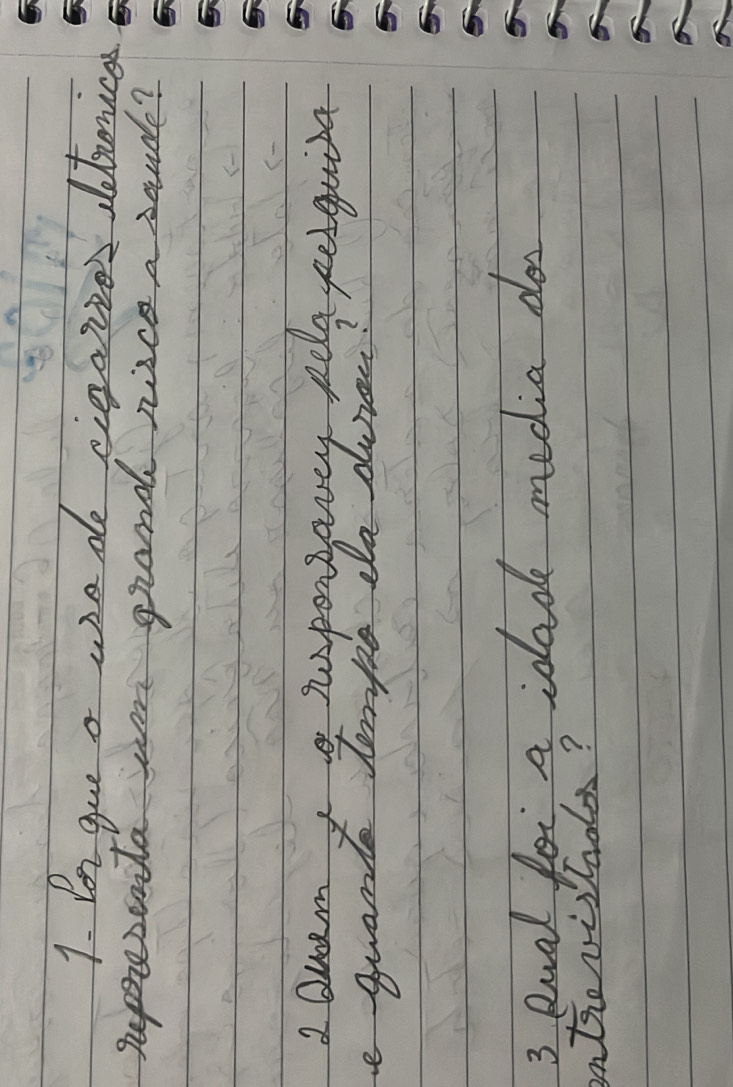 1- Por que o uso de cigarros eletronicos
representa um grande risco a saude?
2 Quem é o responsavey pela pesquisa
e quanto tempo ela durou?
3 Qual foi a idade media dos
entrevistados?